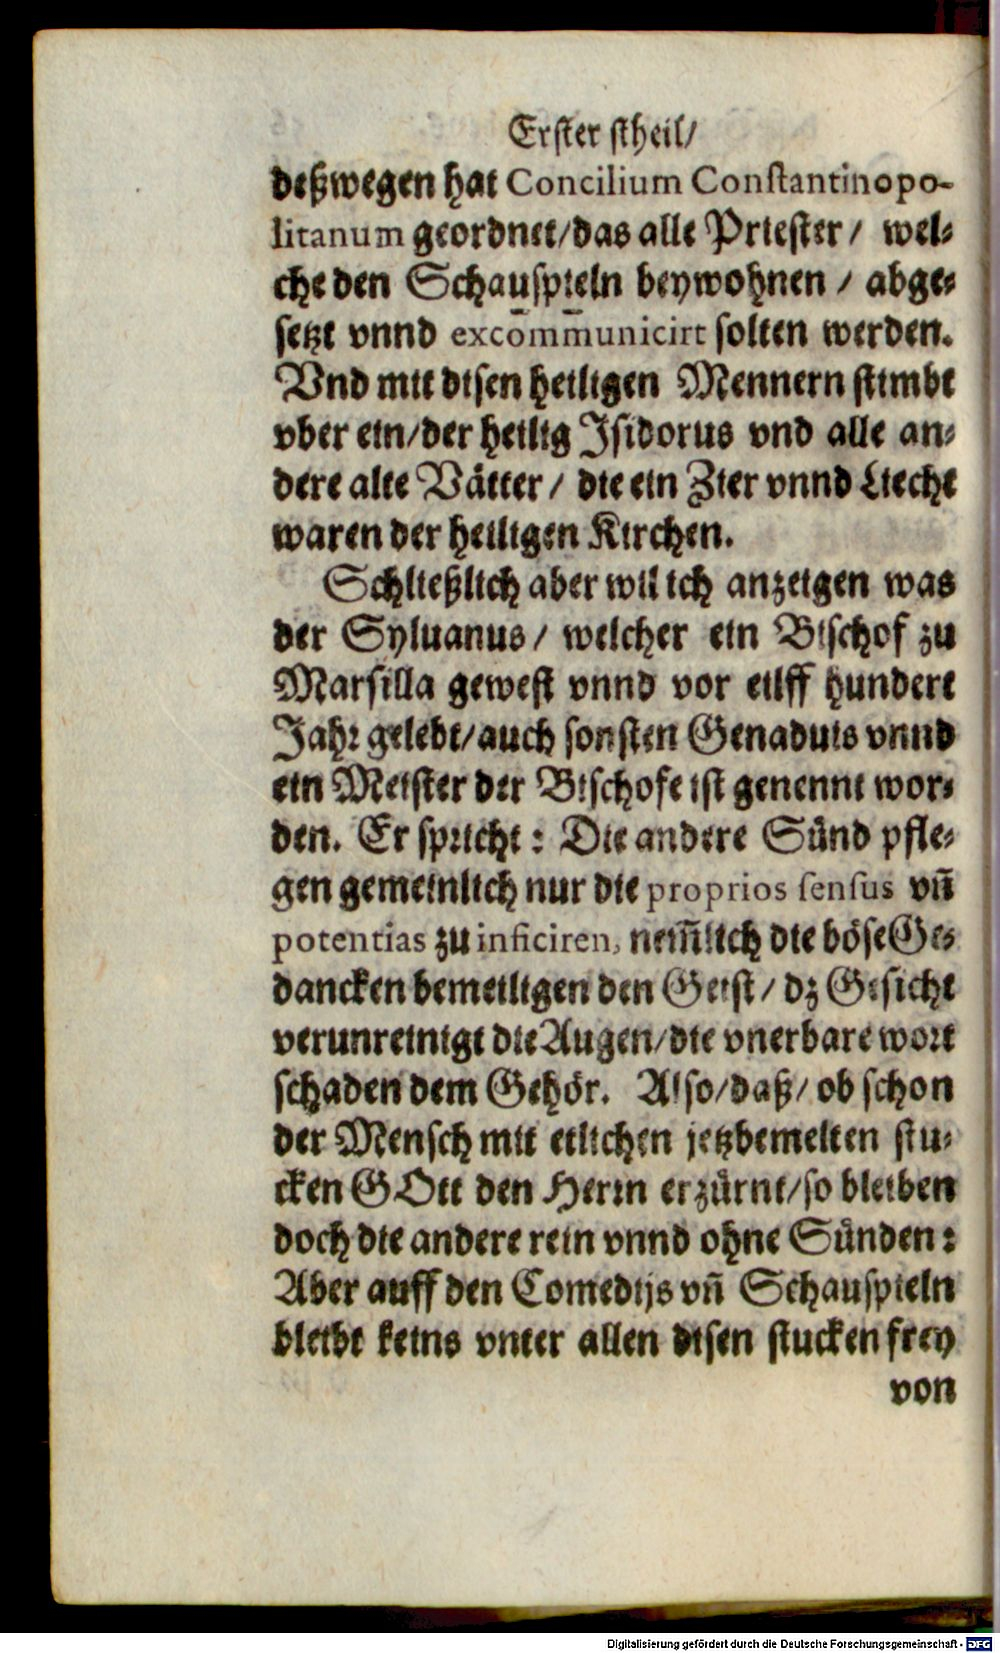 Erster stheil/
deßwegen hat Concilium Constantinopo-
litanum geordnet/das alle Priester/ wel-
che den Schauspieln beywohnen / abge-
setzt vnnd excom̄municirt solten werden.
Vnd mit disen heiligen Mennern stimbt
vber ein/der heilig Isidorus vnd alle an-
dere alte Vätter/ die ein Zier vnnd Liecht
waren der heiligen Kirchen.
Schließlich aber wil ich anzeigen was
der Syluanus/ welcher ein Bischof zu
Marsilla gewest vnnd vor eilff hundert
Jahr gelebt/auch sonsten Genaduis vnnd
ein Meister der Bischofe ist genennt wor-
den. Er spricht: Die andere Sünd pfle-
gen gemeinlich nur die proprios sensus vn̄
potentias zu inficiren, nem̄lich die böse Ge-
dancken bemeiligen den Geist/ dz Gesicht
verunreinigt die Augen/die vnerbare wort
schaden dem Gehör. Also/daß/ ob schon
der Mensch mit etlichen jetzbemelten stu-
cken GOtt den Herrn erzürnt/so bleiben
doch die andere rein vnnd ohne Sünden:
Aber auff den Comedijs vn̄ Schauspieln
bleibt keins vnter allen disen stucken frey
von
Digitalisierung gefördert durch die Deutsche Forschungsgemeinschaft - DFG